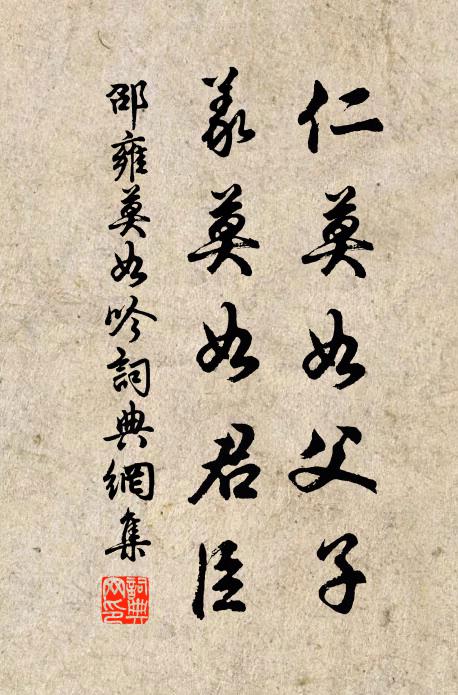 仁莫如父子
義莫如君臣
邵雍莫如吟詞典網集
詞典
網印